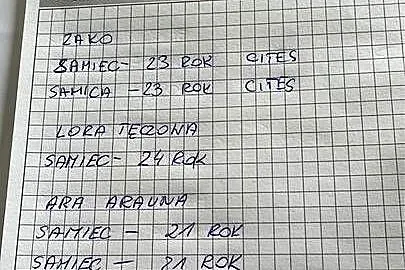 ŻAKO
SAMIEC - 23 ROK CITES
SAMICA - 23 ROK CITES
LORA TĘCZOWA
SAMIEC - 24 ROK
ARA ARAUNA
SAMIEC - 21 ROK
SAMIEC - 21 ROK